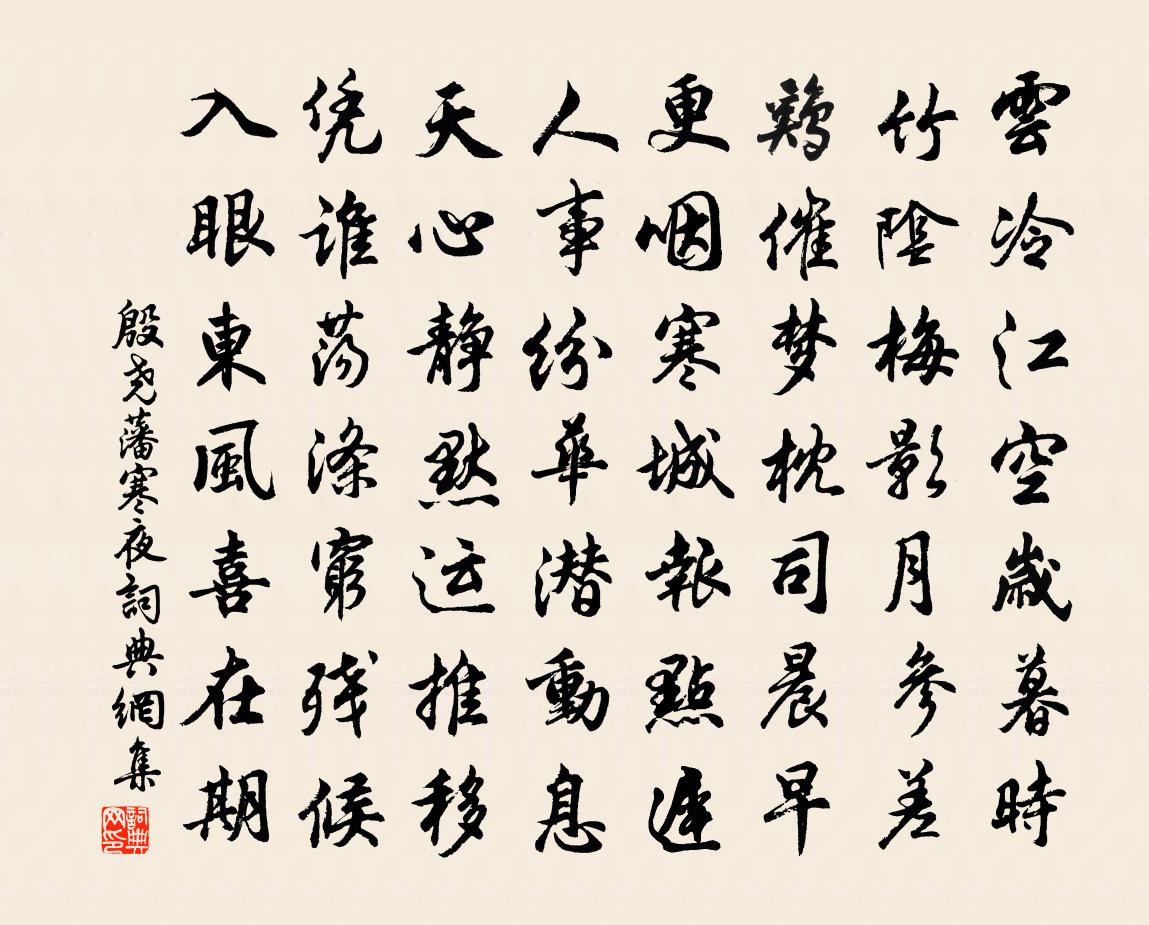 雲冷江空歲暮時
竹陰梅影月參差
鷄催梦枕司晨早
更咽寒城報點遲
人事紛華潜動息
天心静默运推移
凭谁荡涤窮残候
入眼東風喜在期
殷尧藩寒夜詞典網集
詞典网印